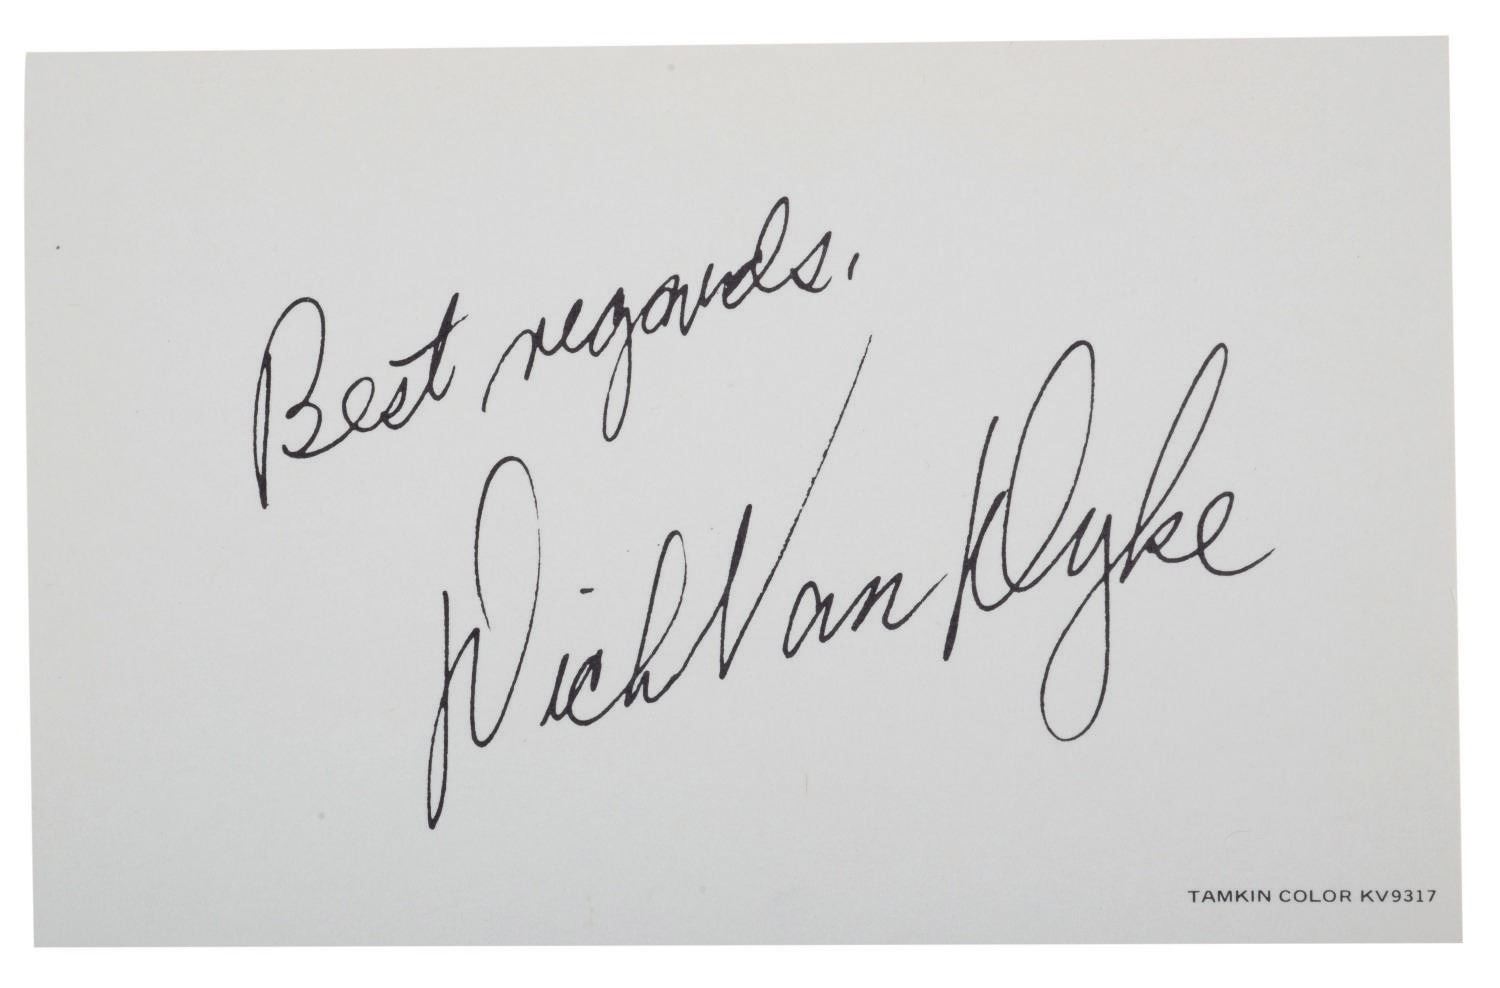 Best regards,
Dick Van Dyke
TAMKIN COLOR KV9317